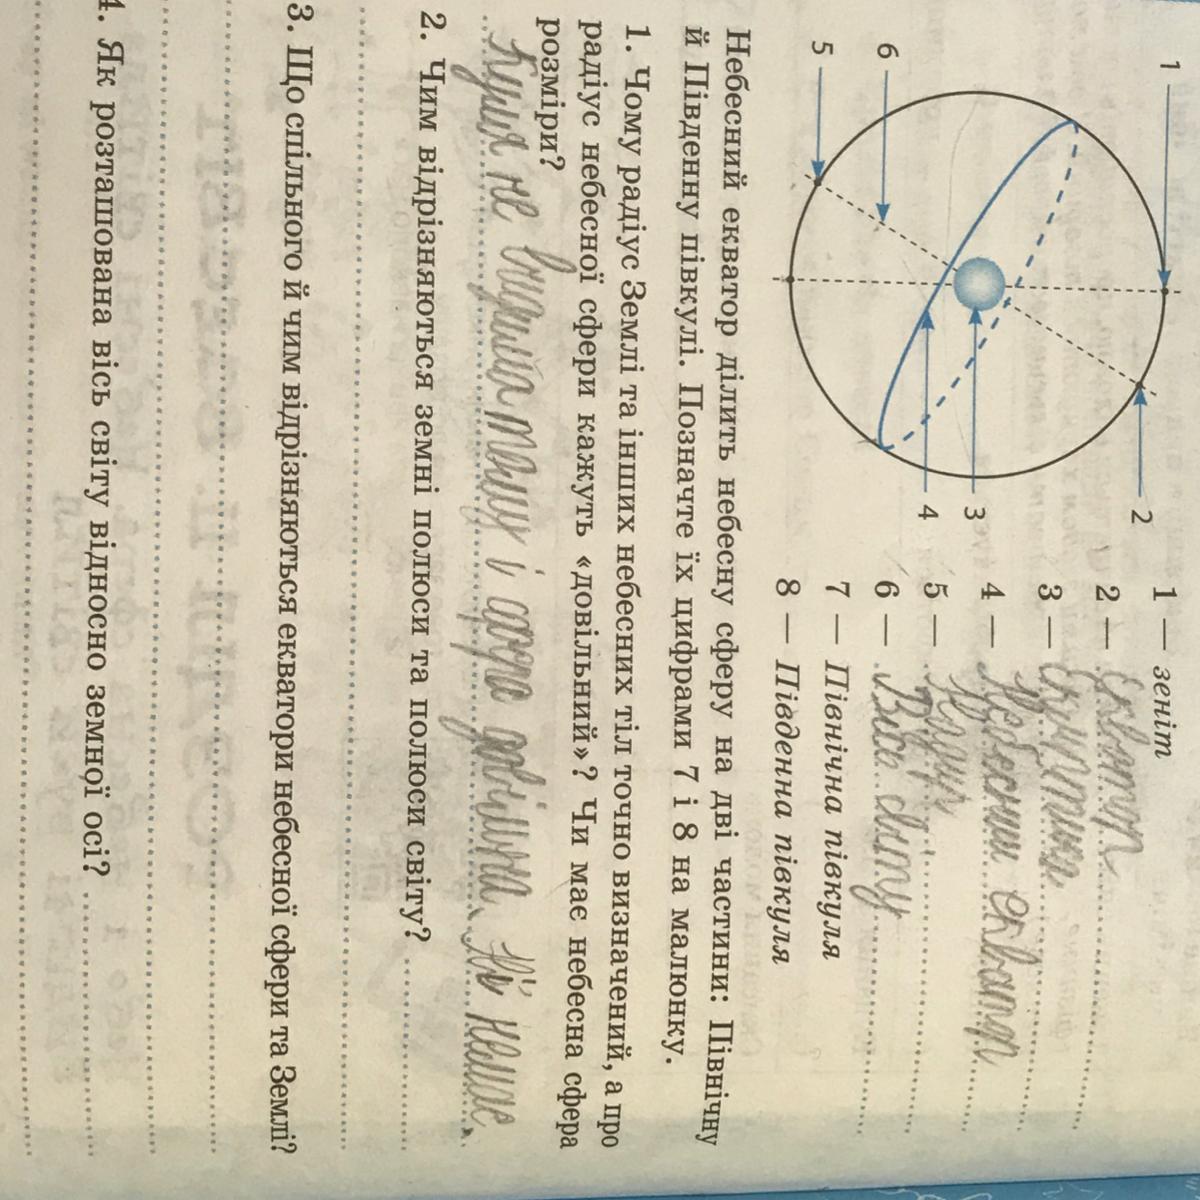 1
2
3
4
5
6
1 — зеніт
2 — Екватор
3 —
4 — Небесний екватор
5 —
6 — Вісь світу
7 — Північна півкуля
8 — Південна півкуля
Небесний екватор ділить небесну сферу на дві частини: Північну
й Південну півкулі. Позначте їх цифрами 7 і 8 на малюнку.
1. Чому радіус Землі та інших небесних тіл точно визначений, а про
радіус небесної сфери кажуть «довільний»? Чи має небесна сфера
розміри?
не і довільна. Ні немає.
2. Чим відрізняються земні полюси та полюси світу?
3. Що спільного й чим відрізняються екватори небесної сфери та Землі?
4. Як розташована вісь світу відносно земної осі?